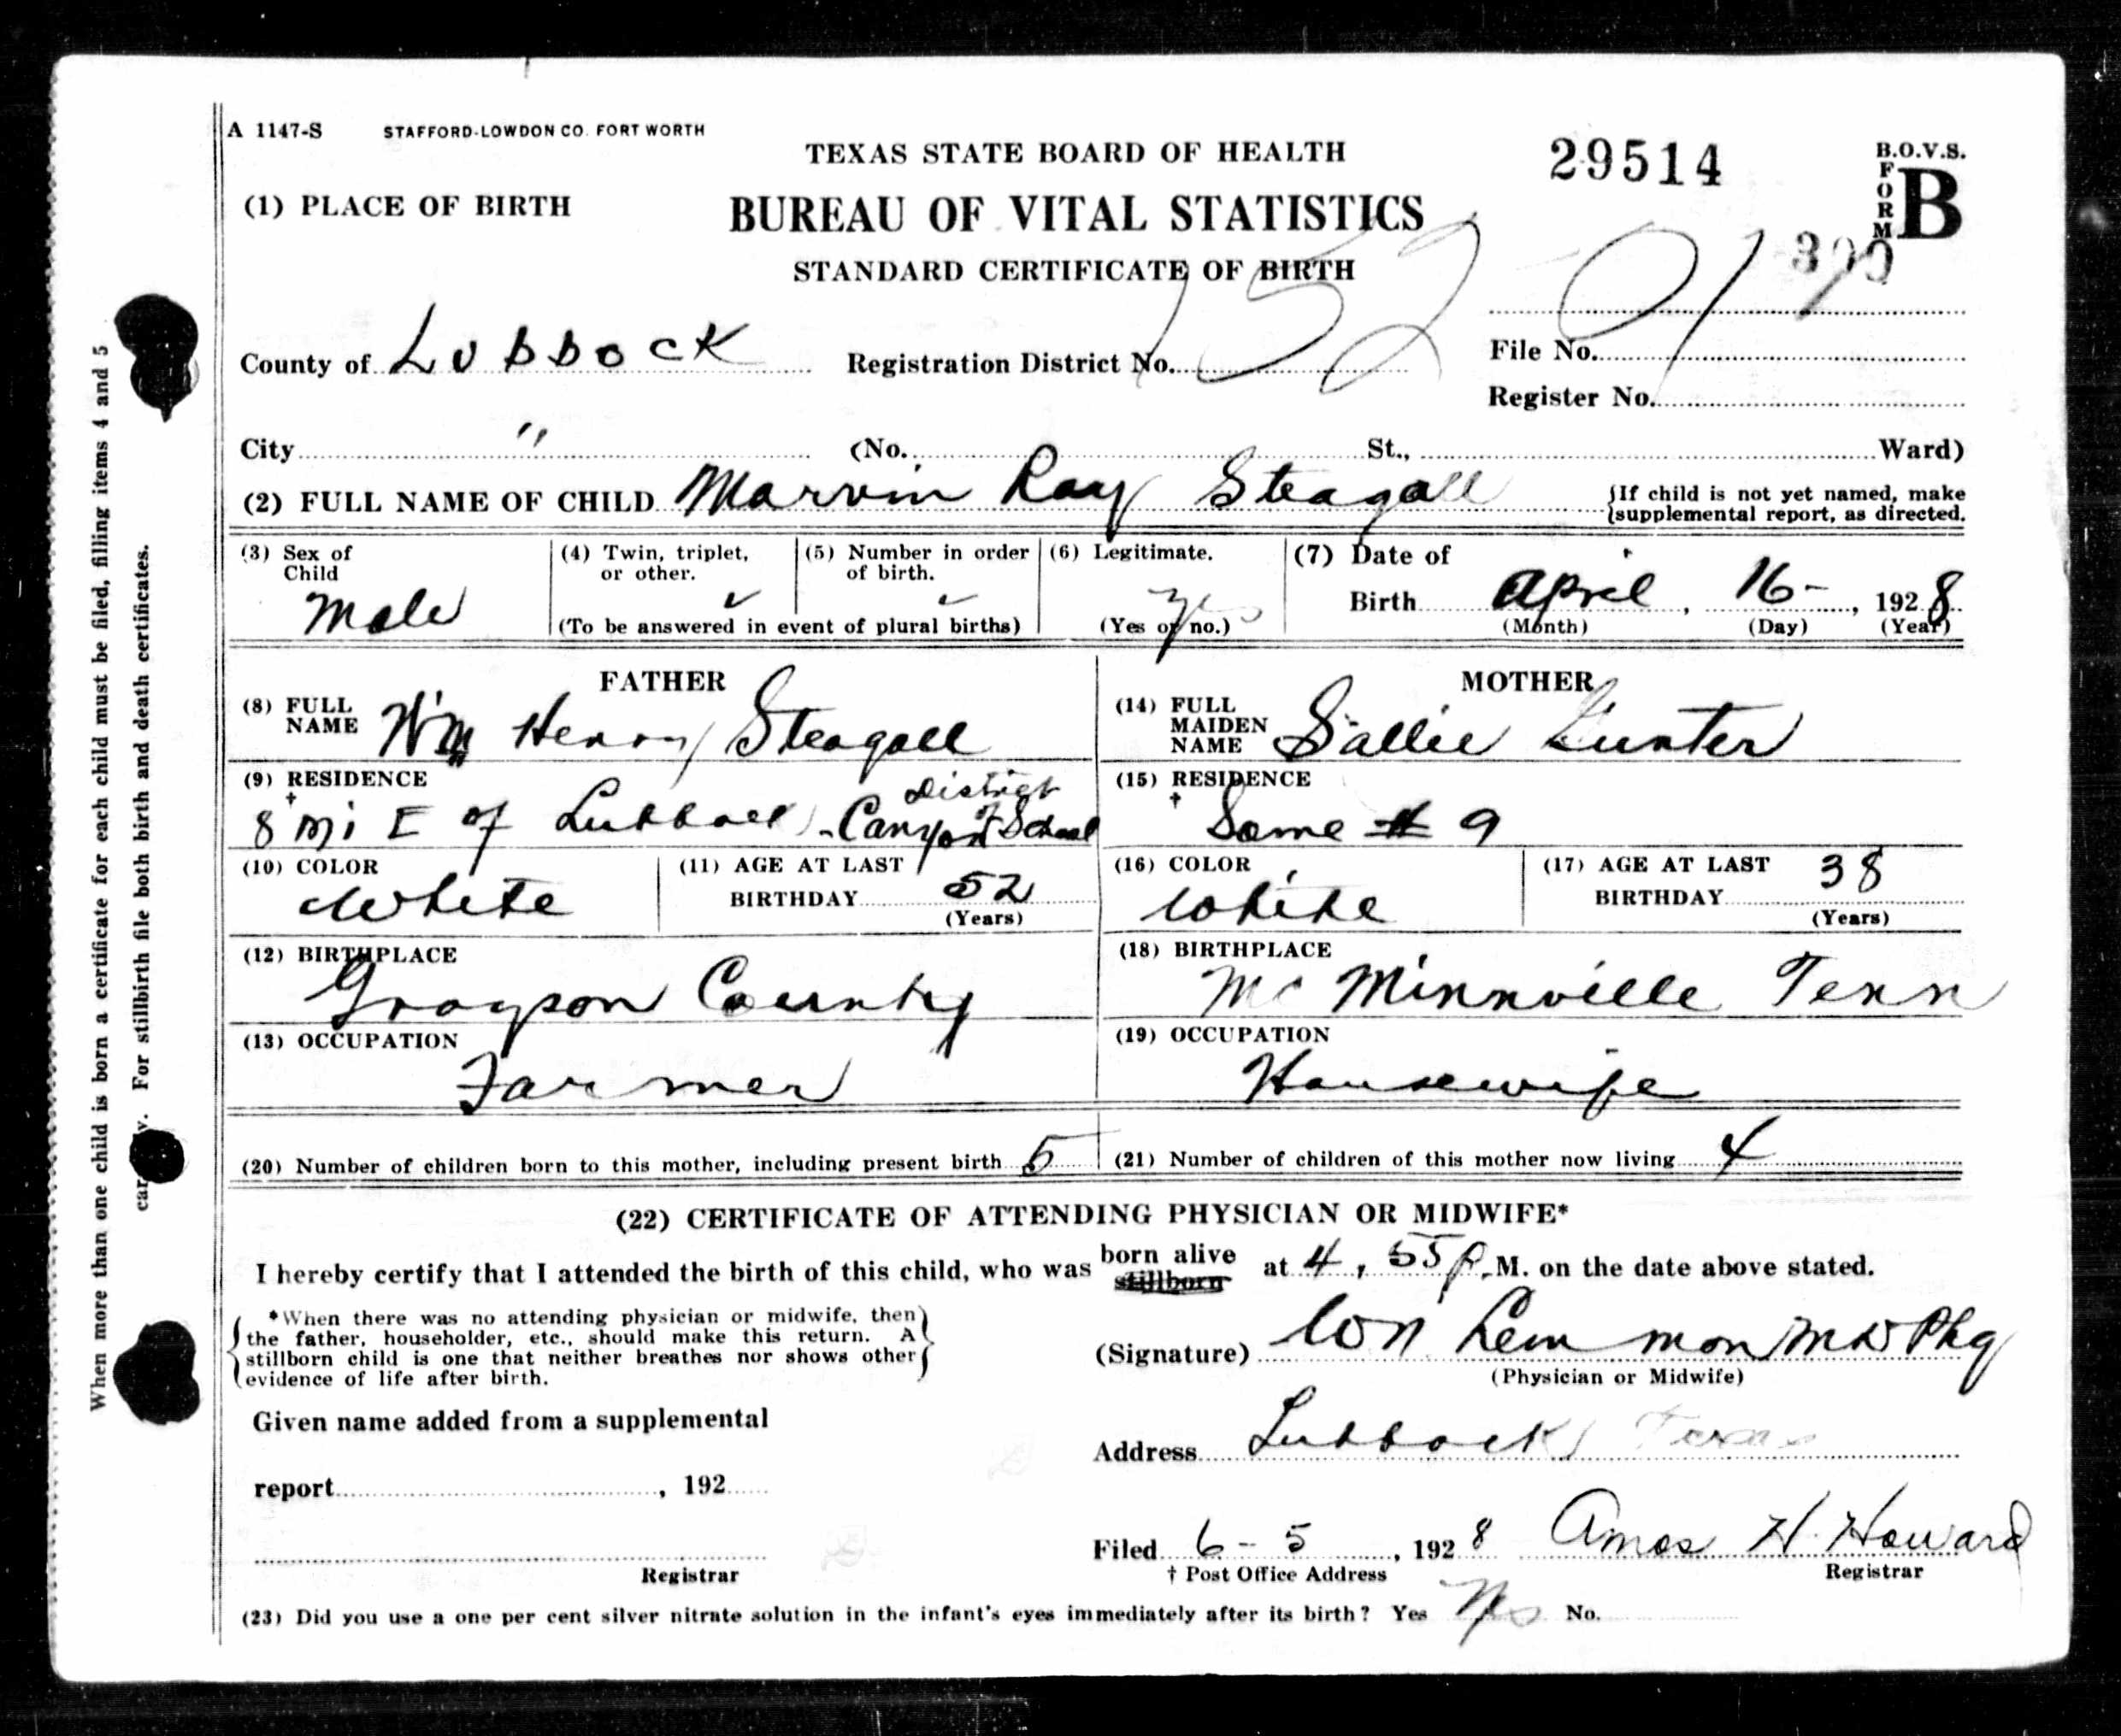 A 1147-S STAFFORD-LOWDON CO. FORT WORTH
TEXAS STATE BOARD OF HEALTH
29514
B.O.V.S.
FORM B
(1) PLACE OF BIRTH
BUREAU OF VITAL STATISTICS
STANDARD CERTIFICATE OF BIRTH
County of Lubbock Registration District No. 152 File No.
Register No.
City " (No. St., Ward)
(2) FULL NAME OF CHILD Marvin Ray Steagall {If child is not yet named, make
{supplemental report, as directed.
(3) Sex of Child Male
(4) Twin, triplet, or other. ✓
(5) Number in order of birth. ✓
(To be answered in event of plural births)
(6) Legitimate. Yes
(Yes or no.)
(7) Date of Birth April, 16-, 1928
(Month) (Day) (Year)
FATHER
(8) FULL NAME Wm Henry Steagall
(9) RESIDENCE
†
8 mi E of Lubbock - Canyon School District
(10) COLOR White
(11) AGE AT LAST BIRTHDAY 52
(Years)
(12) BIRTHPLACE
Grayson County
(13) OCCUPATION
Farmer
MOTHER
(14) FULL MAIDEN NAME Sallie Gunter
(15) RESIDENCE
†
Same # 9
(16) COLOR White
(17) AGE AT LAST BIRTHDAY 38
(Years)
(18) BIRTHPLACE
Mc Minnville Tenn
(19) OCCUPATION
Housewife
(20) Number of children born to this mother, including present birth 5
(21) Number of children of this mother now living 4
(22) CERTIFICATE OF ATTENDING PHYSICIAN OR MIDWIFE*
I hereby certify that I attended the birth of this child, who was born alive stillborn at 4, 55 P. M. on the date above stated.
*When there was no attending physician or midwife, then
the father, householder, etc., should make this return. A
stillborn child is one that neither breathes nor shows other
evidence of life after birth.
(Signature) Lemmon MD Phy
(Physician or Midwife)
Given name added from a supplemental
report , 192
Registrar
Address Lubbock Texas
Filed 6-5, 1928 Amos H. Howard
† Post Office Address Registrar
(23) Did you use a one per cent silver nitrate solution in the infant's eyes immediately after its birth? Yes Yes No.
When more than one child is born a certificate for each child must be filed, filling items 4 and 5
For stillbirth file both birth and death certificates.